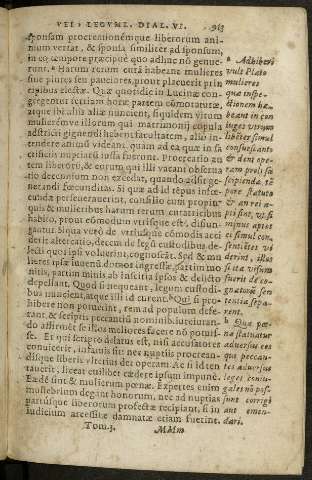 VEL, LEGVM. DIAL. VI. 913
sponsam procreationémque liberorum ani-
mum vertat, & sponsa similiter ad sponsum,
in eo tempore præcipuè quo adhuc nō genue-
runt. Harum rerum curā habeāt mulieres
siue plures siue pauciores, prout placuerit prin
cipibus electæ. Quæ quotidie in Lucinæ con-
gregentur tertiam horæ partem cōmoraturæ,
atque ibi aliis aliæ nuncient, siquidem virum
mulierémve illorum qui matrimonij copula
adstricti gignendi habent facultatem, alio in-
tendere animū videant, quàm ad ea quæ in sa
crificiis nuptiaʀum iussa fuerunt. Procreatio au
tem liberorū, & eorum qui illis vacant obserua
tio decennium non excedat, quando adsit ge-
nerandi fœcunditas. Si qui ad id tēpus infœ-
cundi perseuerauerint, consilio cum propin-
quis & mulieribus harum rerum curatricibus
habito, prout cōmodum vtrisque est, disiun-
gantur. Siqua verò de vtriusque cōmodis acci
derit altercatio, decem de legū custodibus de-
lecti quos ipsi voluerint, cognoscāt. Sed & mu
lieres ipsæ iuuenū domos ingressæ, partim mo
nitis, partim minis ab inscitia ipsos & delicto
depellant. Quod si nequeant, legum custodi-
bus nuncient, atque illi id curent. Qui si pro-
hibere non potuerint, rem ad populum defe-
rant, & scriptis peccantiū nominib. iureiuran-
do affirmēt se illos meliores facere nō potuis-
se. Et qui scripto delatus est, nisi accusatores
conuicerit, infamis sit: nec nuptiis procrean-
disque liberis vlterius det operam. At si id ten
tauerit, liceat cuilibet cædere ipsum impunè.
Eædē sint & mulierum pœnæ. Expertes enim
muliebrium degant honorum, nec ad nuptias
partúsque liberorum profectæ recipiant, si in
iudicium accersitæ damnatæ etiam fuerint.
Tom. 3. MMm
Adhiberi
vult Plato
mulieres
quæ inspe-
ctionem ha-
beant in con
iuges virum
libēter simul
consuescant
& dent ope-
ram proli su
scipiendæ tē
pore statuto
& an rei a-
pti sint, vt si
minus aptos
ei simul con-
sentiētes vi
derint, illos
si ita visum
fuerit de co-
gnatorū sen
tentia sepa-
rent.
Qua pœ-
na statuatur
aduersus eos
qui peccan-
tes aduersus
leges coniu-
gales nō pos
sunt corrigi
aut emen-
dari.